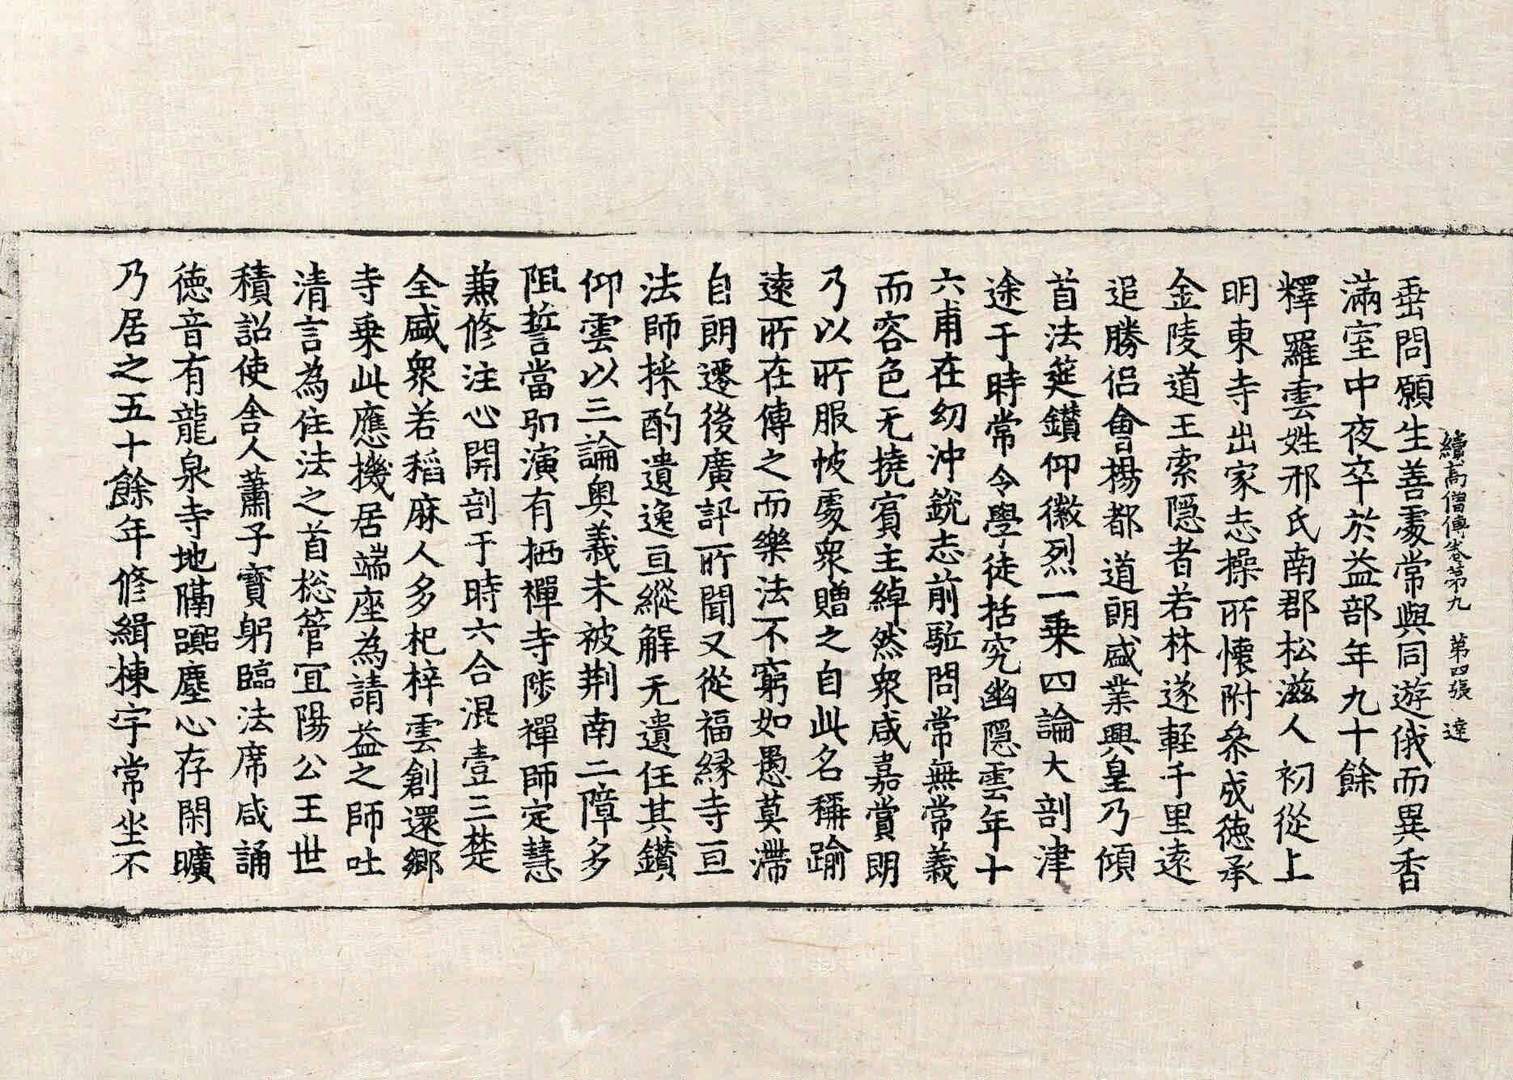 續高僧傳卷第九　第四張　達
垂問願生善處常與同遊俄而異香
滿室中夜卒於益部年九十餘
釋羅雲姓邢氏南郡松滋人初從上
明東寺出家志操所懷附參成德承
金陵道王索隱者若林遂輕千里遠
追勝侶會楊都道朗盛業興皇乃傾
首法筵鑚仰徽烈一乘四論大剖津
途于時常令學徒括究幽隱雲年十
六甫在幼沖銳志前駈問常無常義
而容色无撓賔主綽然衆咸嘉賞朗
乃以所服帔處衆贈之自此名稱踰
遠所在傳之而樂法不窮如愚莫滯
自朗遷後廣訊所聞又從福縁寺亘
法師採酌遺逸亘縱解无遺任其鑚
仰雲以三論奧義未被荆南二障多
阻誓當弘演有栖禪寺陟禪師定慧
兼修注心開剖于時六合混壹三楚
全盛衆若稻麻人多杞梓雲創還鄉
寺乗此應機居端座為請益之師吐
清言為住法之首捴管冝陽公王世
積詔使舍人蕭子寶躬臨法席咸誦
德音有龍泉寺地隔囂塵心存閑曠
乃居之五十餘年修緝棟宇常坐不